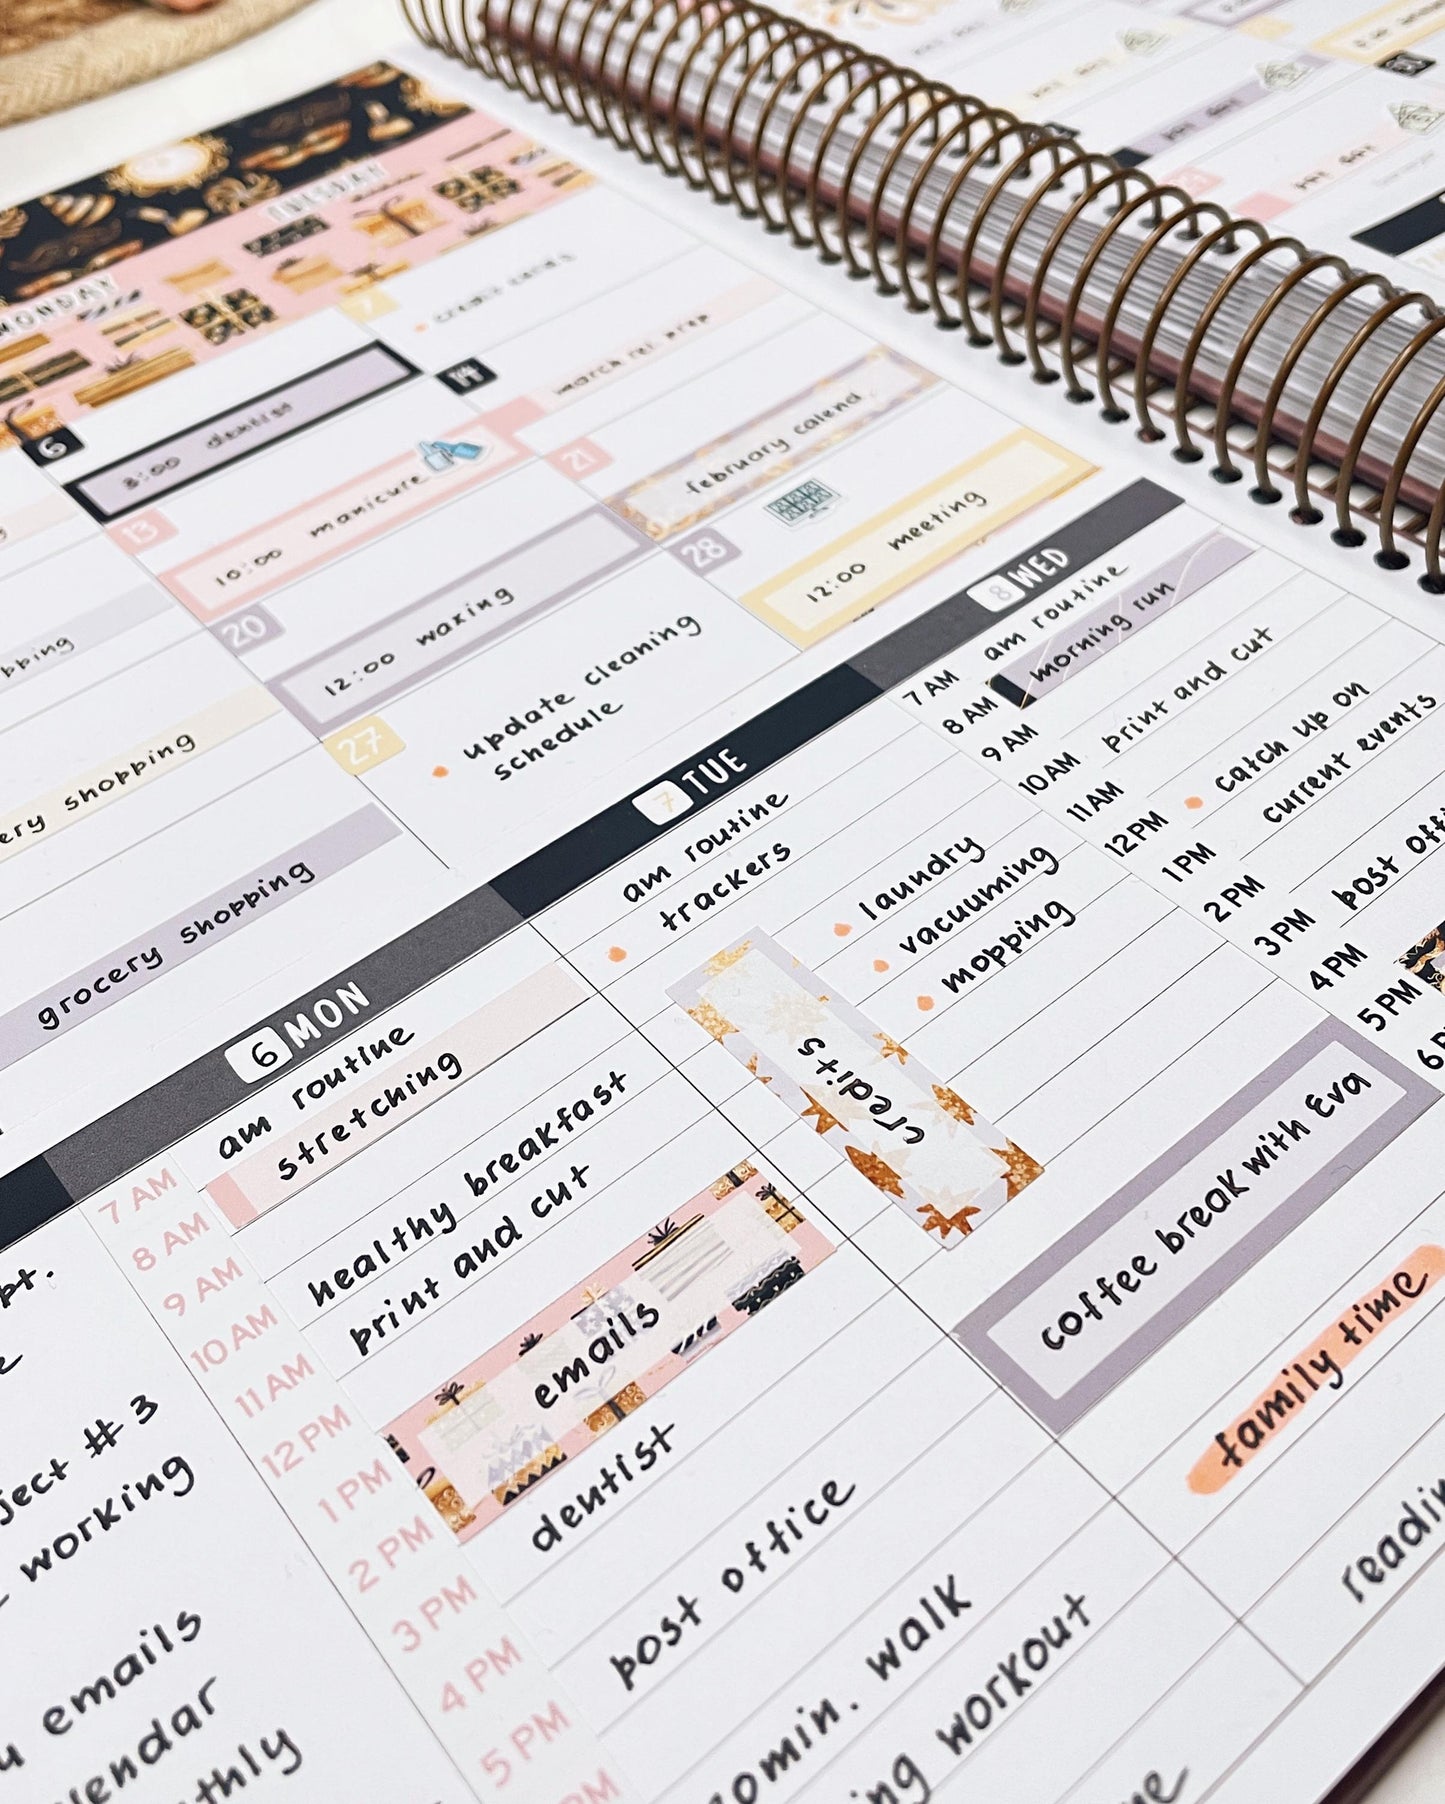 MONDAY
TUESDAY
6
8:00 dentist
13
10:00 manicure
20
12:00 waxing
27
update cleaning
schedule
7
credit cards
14
march rel. prep
21
february calend
28
12:00 meeting
shopping
grocery shopping
6 MON
am routine
7 AM
stretching
8 AM
9 AM
healthy breakfast
10 AM
print and cut
11 AM
12 PM
emails
1 PM
2 PM
dentist
3 PM
4 PM
post office
5 PM
walk
workout
7 TUE
am routine
trackers
credits
laundry
vacuuming
mopping
coffee break with Eva
family time
8 WED
am routine
7 AM
morning run
8 AM
9 AM
print and cut
10 AM
11 AM
catch up on
current events
12 PM
1 PM
2 PM
post
3 PM
4 PM
5 PM
6
#3
working
emails